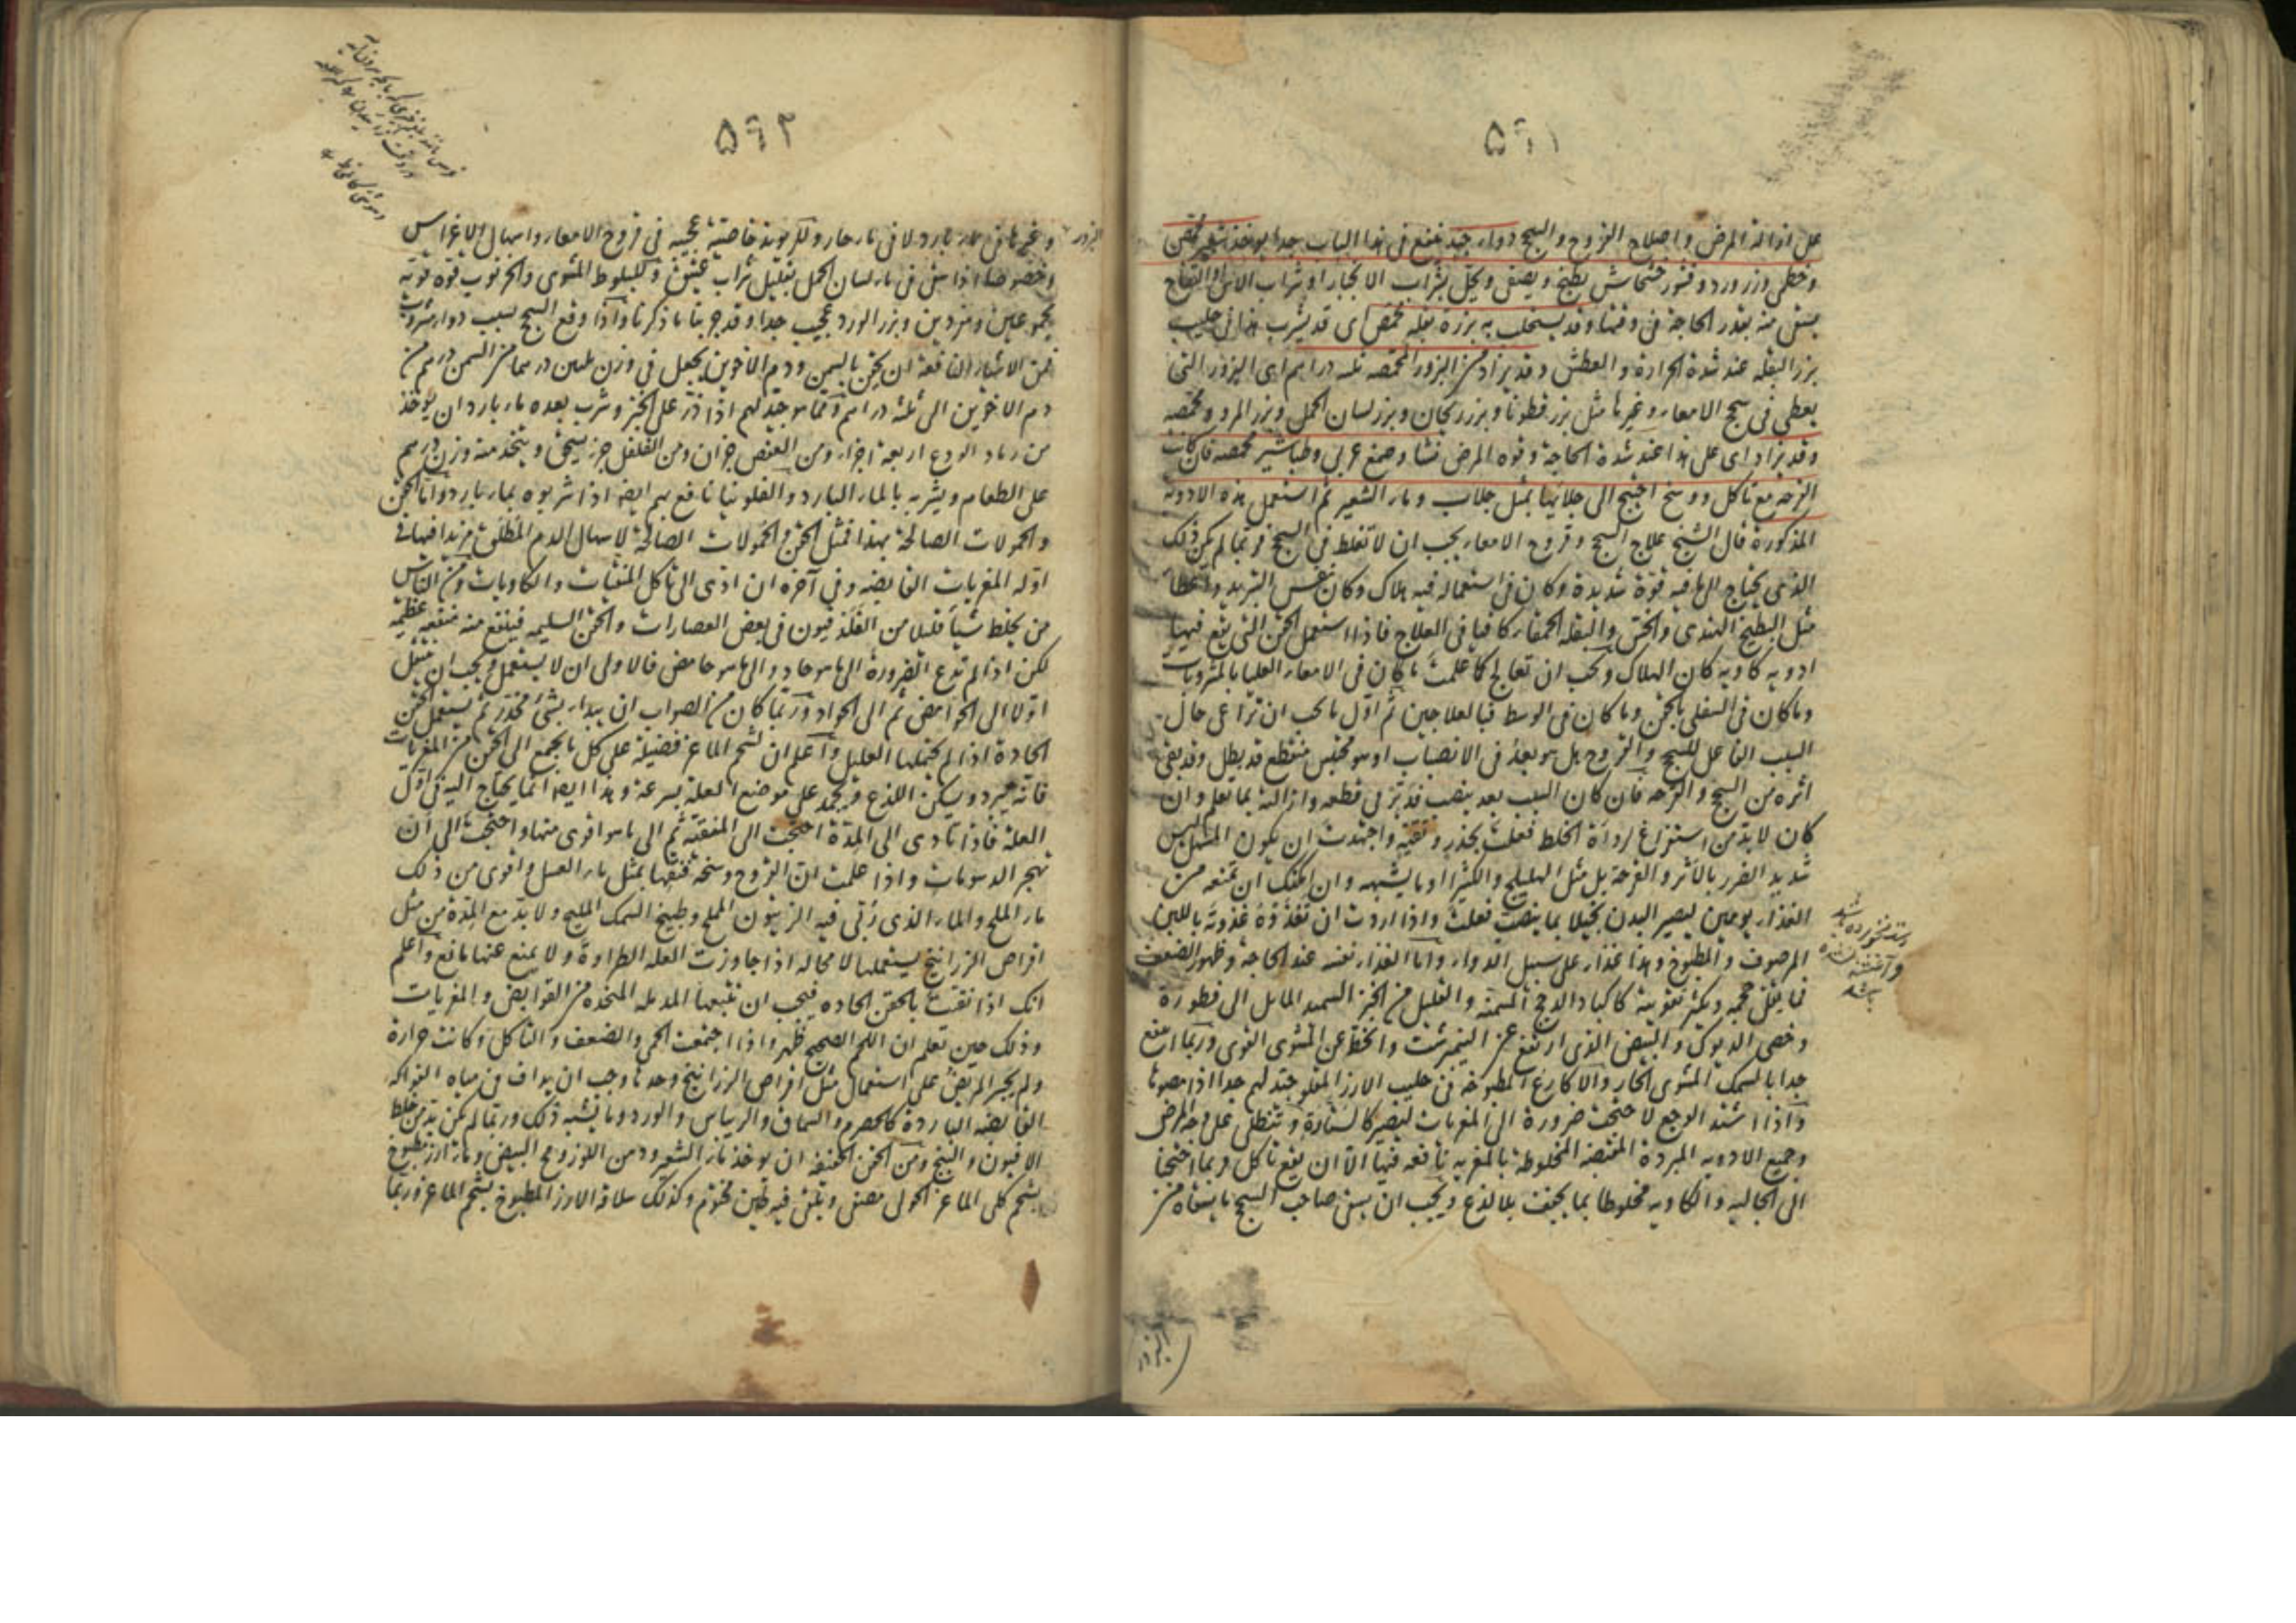 ٥٦١
على ازالة المرض واصلاح القروح والسحج دواء جيد ينفع فى هذا الباب جدا يوخذ شعير محمص
وخطمى وزر ورد وقشور خشخاش يطبخ ويصفى ويحلى بشراب الانجبار او شراب الاس او التفاح
يسقى منه بقدر الحاجة فى وقتها وقد يستحلب به بزرة بقله محمص اى قد يشرب هذا فى حليب
بزر البقله عند شدة الحرارة والعطش وقد يزاد من البزور المحمصه ثلثه دراهم اى البزور التى
يعطى فى سحج الامعاء وغيرها مثل بزر قطونا وبزر ريحان وبزر لسان الحمل وبزر المرو ومحمصه
وقد يزاد اى على هذا عند شدة الحاجة وقوه المرض نشا وصمغ عربى وطباشير محمصه فان كانت
القرحة مع تاكل ووسخ احتيج الى جلائها بمثل جلاب وماء الشعير ثم استعمل هذه الادوية
المذكورة قال الشيخ علاج السحج وقروح الامعاء يجب ان لا تغلط فى السحج فربما لم يكن ذلك
الذى يحتاج الى ما فيه قوة شديدة وكان فى استعماله فيه هلاك وكان نفس التبريد واعطا
مثل البطيخ الهندى والخس والبقله الحمقاء كافيا فى العلاج فاذا استعمل الحقن التى يقع فيها
ادويه كاويه كان الهلاك ويجب ان تعالج كما علمت ما كان فى الامعاء العليا بالمشروبات
وما كان فى السفلى بالحقن وما كان فى الوسط فبالعلاجين ثم اول ما يجب ان تراعى حال
السبب الفاعل للسحج والقروح هل هو بعد فى الانصباب او هو محتبس منقطع قد بطل وقد بقى
اثره من السحج والقرحه فان كان السبب بعد ينصب فدبر فى قطعه وازالته بما تعلم وان
كان لابد من استفراغ لرداءة الخلط فعلت بحذر وتقية واجتهدت ان يكون المسهل ليس
شديد الضرر بالاثر والقرحة بل مثل الهليلج والكثيرا وما يشبهه وان امكنك ان تمنعه من
الغذاء يومين ليصير البدن بخيلا بما ينصب فعلت واذا اردت ان تغذوه غذوته باللبن
المرضوف والمطبوخ وهذا غذاء على سبيل الدواء واما الغذاء نفسه عند الحاجة وظهور الضعف
فما يقل حجمه ويكثر تقويته كاكباد الدجج المسمنة والقليل من الخبز السميد المايل الى فطورة
وخصى الديوك والبيض الذى ارتفع عن النيمرشت وانحط عن المشوى القوى وربما انتفع
جدا بالسمك المشوى الحار والاكارع المطبوخة فى حليب الارز المقلو جيد لهم جدا اذا مصوها
واذا اشتد الوجع لا حتجت ضرورة الى المغريات ليصير كالستارة وتنطلى على المرض
وجميع الادويه المبردة المقبضه المخلوطة بالمغريه نافعه فيها الا ان يقع تاكل فربما احتجنا
الى الجاليه والكاويه مخلوطا بما يجفف بلا لذع ويجب ان يسقى صاحب السحج ما يسقاه من
البزور
٥٦٢
وغيرها فى ماء بارد لا فى ماء حار وللريوند خاصية عجيبه فى قروح الامعاء واسهال الاغراس
وخصوصا اذا سقى فى ماء لسان الحمل بقليل شراب عتيق وللبلوط المشوى والخرنوب قوة قويه
مجموعين ومفردين وبزر الورد عجيب جدا وقد جربنا ما ذكرنا واذا وقع السحج بسبب دواء مشروب
فمن الاشياء النافعة ان يحقن بالسمن ودم الاخوين يجعل فى وزن ثلثين درهما من السمن درهم من
دم الاخوين الى ثلثة دراهم ومما هو جيد لهم اذا ذر على الخبز وشرب بعده ماء بارد ان يوخذ
من رماد الودع اربعة اجزاء ومن العفص جزان ومن الفلفل جزء يسحق ويتخذ منه وزن درهم
على الطعام ويشربه بالماء البارد والفلونيا نافع لهم ايضا اذا شربوه بماء بارد واما الحقن
والحمولات الصالحة لهذا فمثل الحقن والحمولات الصالحة لاسهال الدم المطلق منذ افهى فى
اوله المغريات القابضه وفى آخره ان ادى الى تاكل المنقيات والكاويات ومن الناس
من يخلط شيأ قليلا من الفلدفيون فى بعض العصارات والحقن السليمه فينتفع منه منفعة عظيمة
لكن اذا لم تدع الضرورة الى ما هو حاد والى ما هو حامض فالاولى ان لا يستعمل ويجب ان تميل
اولا الى الحوامض ثم الى الحواد وربما كان من الصواب ان يبدأ بشئ مخدر ثم يستعمل الحقن
الحادة اذا لم يحتملها العليل واعلم ان لشحم الماعز فضيلة على كل ما يجمع الى الحقن من المغريات
فانه يبرد ويسكن اللذع ويجمد على موضع العلة بسرعة وهذا ايضا انما يحتاج اليه فى اول
العلة فاذا تادى الى المدة احتجت الى المنقية ثم الى ما هو اقوى منها واحتجت الى ان
تهجر الدسومات واذا علمت ان القروح وسخة فنقها بمثل ماء العسل واقوى من ذلك
ماء الملح والماء الذى ربى فيه الزيتون المملح وطبيخ السمك المليح ولابد مع المدة من مثل
اقراص الزرانيخ يستعملها لا محاله اذا جاوزت العلة الطراوة ولا يمنع عنها مانع واعلم
انك اذا نقيت بالحقن الحاده فيجب ان تتبعها المدمله المتخذه من القوابض والمغريات
وذلك حين تعلم ان اللحم الصحيح ظهر واذا اجتمعت الحمى والضعف والتاكل وكانت حرارة
ولم يجسر المريض على استعمال مثل اقراص الزرانيخ وحدها وجب ان يداف فى مياه الفواكه
القابضه الباردة كالحصرم والسماق والريباس والورد وما يشبه ذلك وربما لم يكن بد من خلط
الافيون والبنج ومن الحقن الخفيفه ان يوخذ ماء الشعير ودهن اللوز ومح البيض وماء ارز مطبوخ
بشحم كلى الماعز الحولى مصفى ويلقى فيه طين مختوم وكذلك سلاقة الارز المطبوخ بشحم الماعز وربما